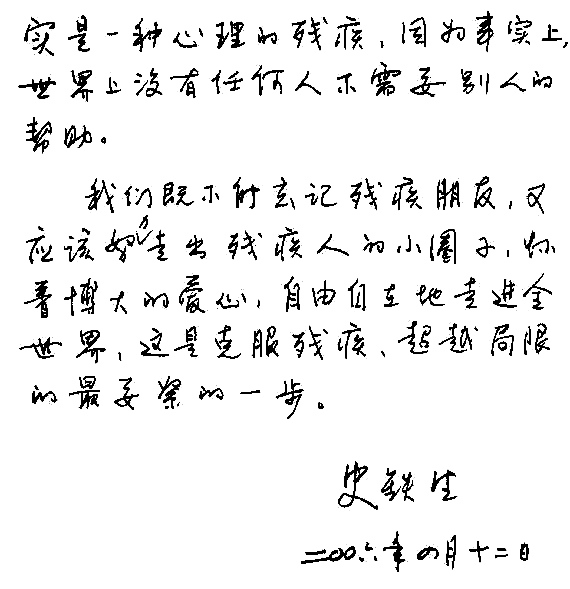 实是一种心理的残疾，因为事实上，
世界上没有任何人不需要别人的
帮助。
我们既不能忘记残疾朋友，又
应该努力走出残疾人的小圈子，怀
着博大的爱心，自由自在地走进全
世界，这是克服残疾、超越局限
的最要紧的一步。
史铁生
二〇〇六年四月十二日